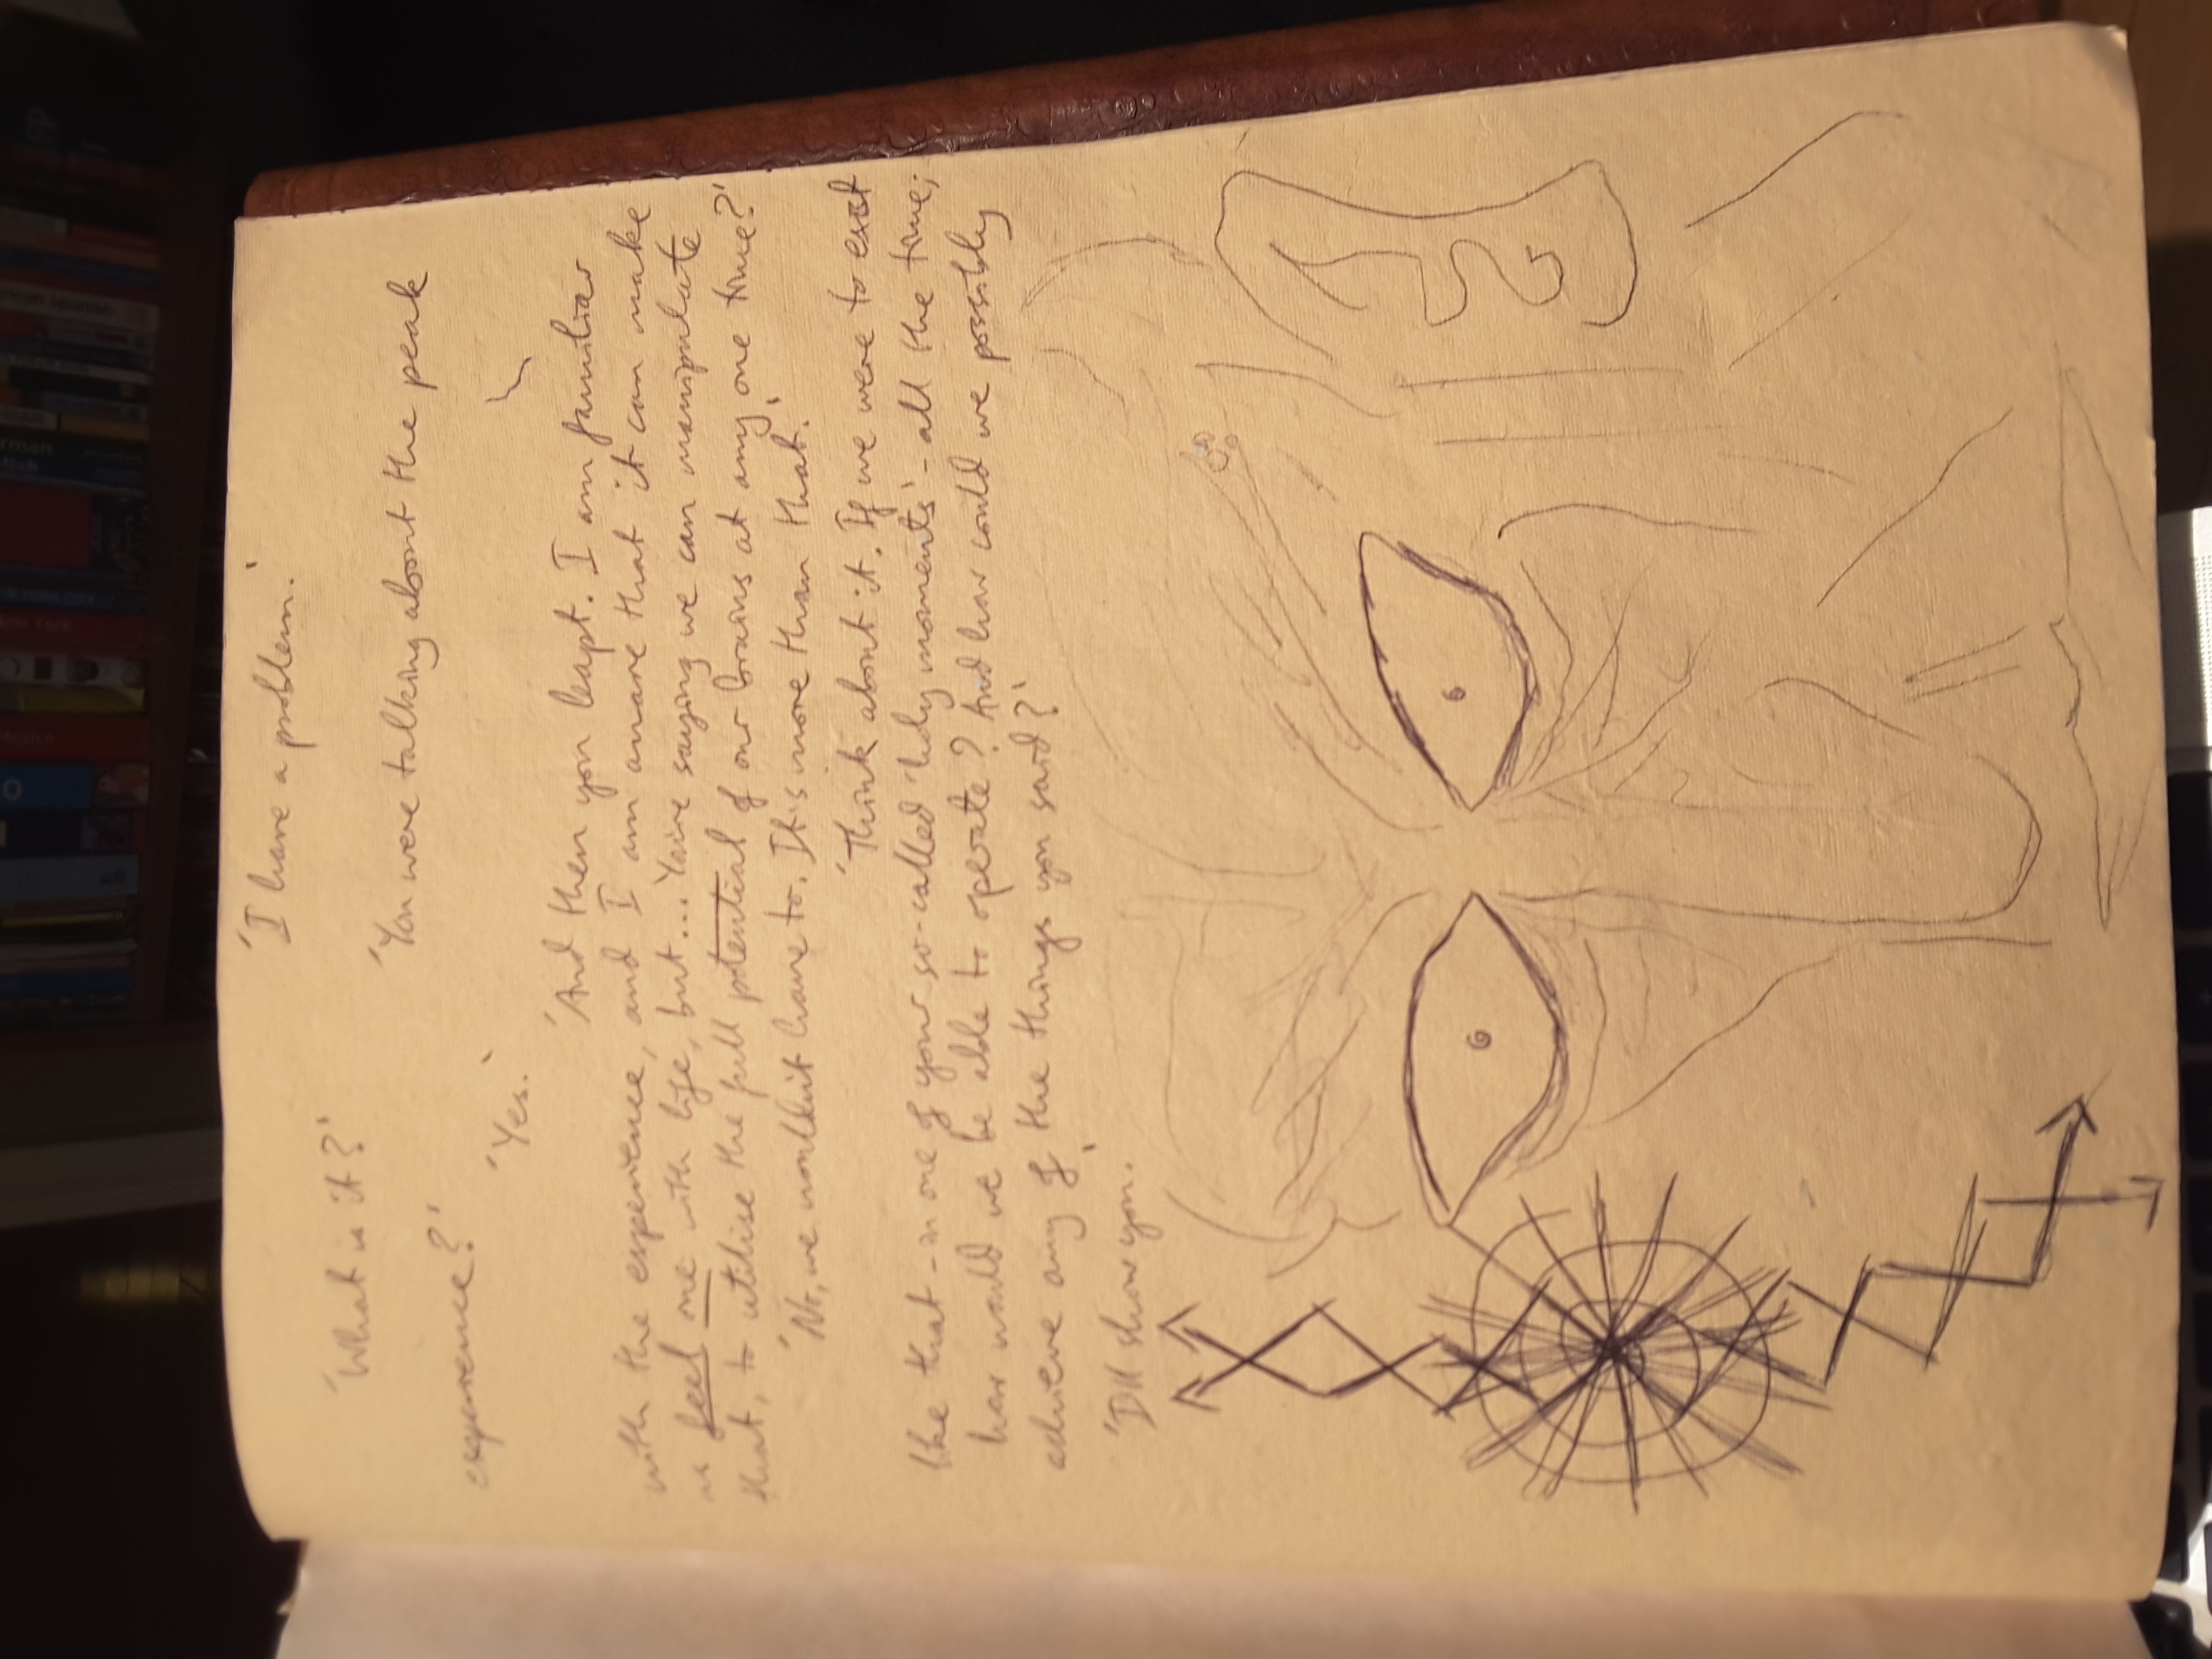 'I have a problem.'
'What is it?'
'You were talking about the peak
experience?'
'Yes.'
'And then you leapt. I am familiar
with the experience, and I am aware that it can make
us feel one with life, but... You're saying we can manipulate
that, to utilise the full potential of our brains at any one time?'
'No, we wouldn't have to. It's more than that.'
'Think about it. If we were to exist
like that - in one of your so-called 'holy moments' - all the time;
how would we be able to operate? And how could we possibly
achieve any of the things you said?'
'I'll show you.'